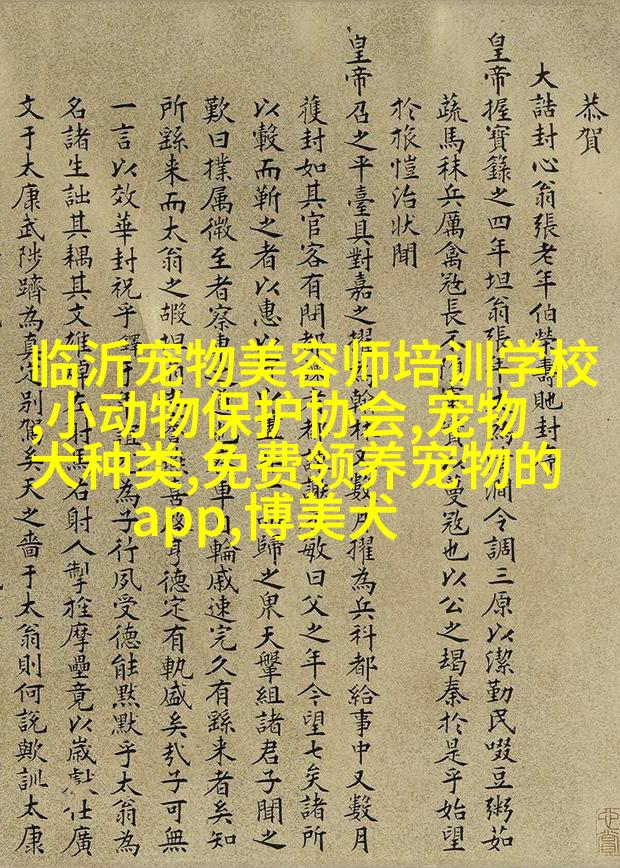 恭賀
大誥封心翁張老年伯榮壽貤封
皇帝握寶籙之四年坦翁張年 澗令調三原以潔勤民啜豆粥如
蔬馬秣兵厲禽冦長不 蔓冦也以公之竭秦於是乎始望
於旅愷治狀聞
皇帝召之平臺具對嘉之擢 數月擢為兵科都給事中又數月
獲封如其官客有問都 敏曰父之年今望七矣諸所
以轂而靳之者以惠 歸之 天 組諸君子聞之
歎曰撲属微至者察車 輪戚速完久有繇来者矣知
所繇来而太翁之嘏 德定有軌盛矣哉子可無
一言以效華封祝乎 為子行夙受德能默默乎太翁為
名諸生詘其耦其文雄 射人掣挂摩壘竟以歲獻仕廣
文于太康武陟躋為真定别駕矣天之嗇于太翁則何説歟訓太康
临沂宠物美容师培训学校
,小动物保护协会,宠物
犬种类,免费领养宠物的
app,博美犬